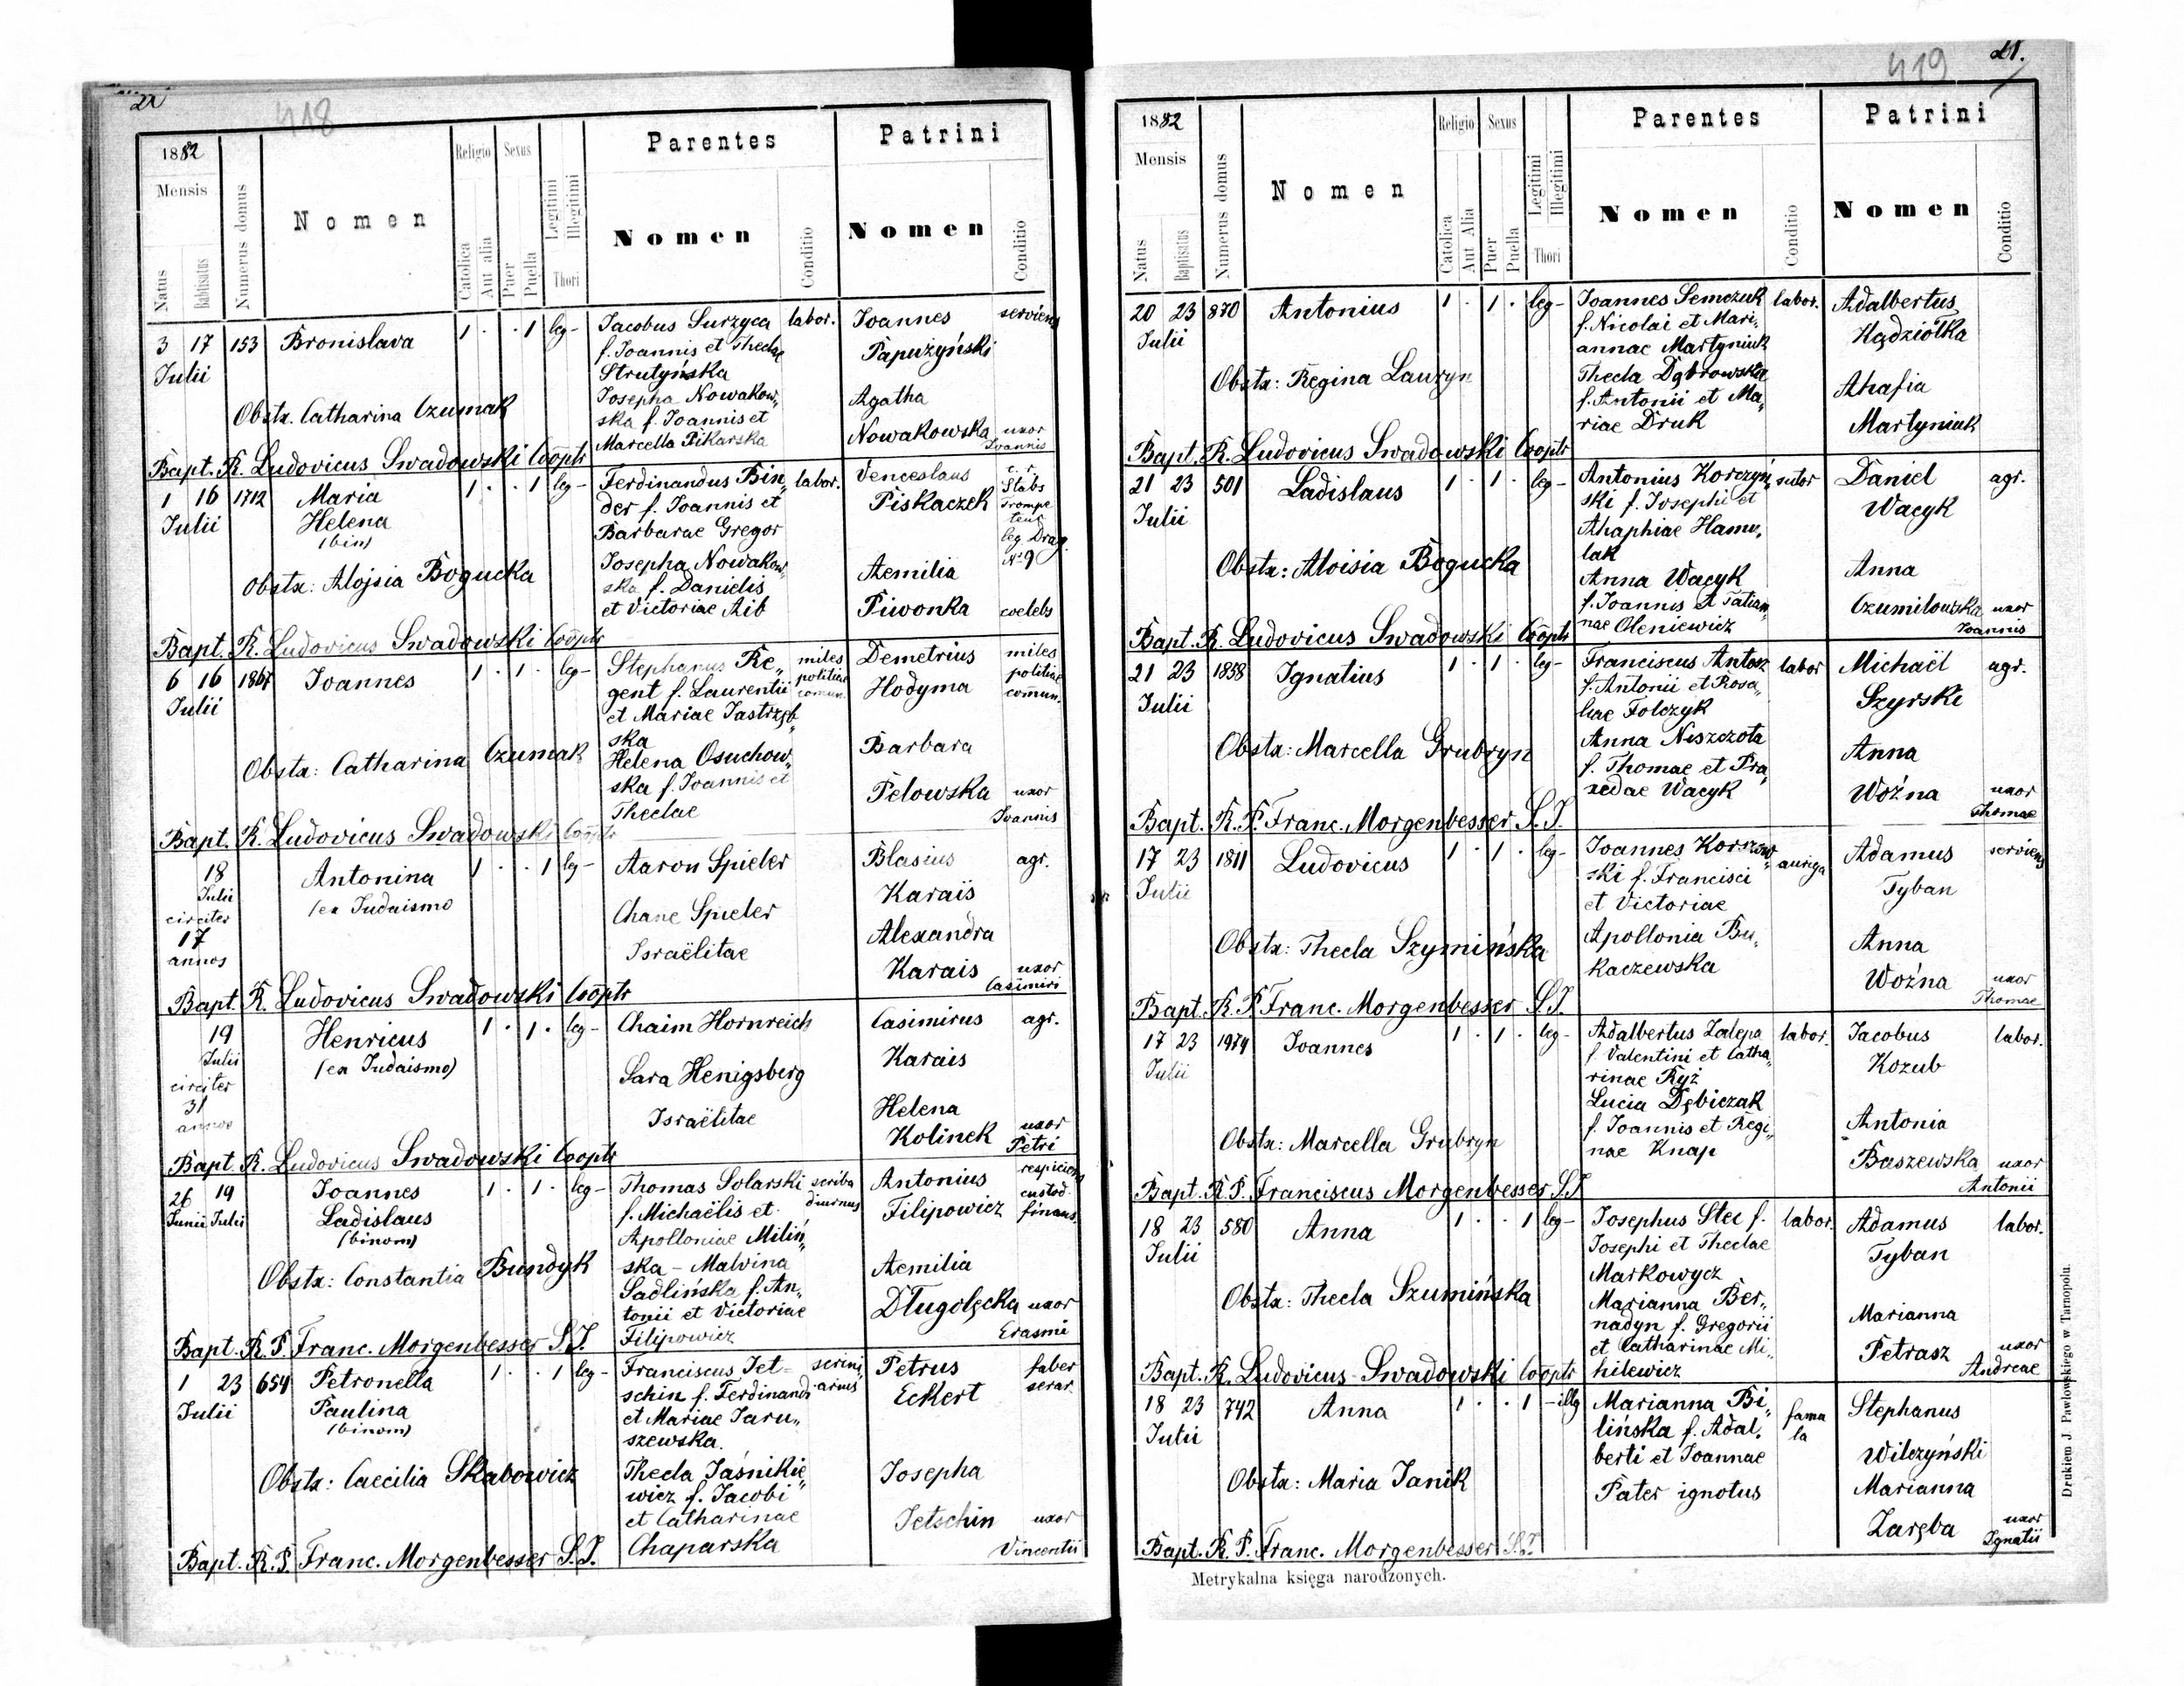 418
1882
Mensis
Natus
Babtisatus
Numerus domus
Nomen
Religio
Catolica
Aut alia
Sexus
Puer
Puella
Legitimi
Illegitimi
Thori
Parentes
Nomen
Conditio
Patrini
Nomen
Conditio
3 17 153 Bronislava 1 . . 1 leg- Jacobus Surzyca labor. Joannes serviens
Julii f. Joannis et Theclae Papużyński
Strutyńska
Obstx. Catharina Czumak Josepha Nowakow„ Agatha
ska f. Joannis et Nowakowska uxor
Marcella Pikarska Joannis
Bapt. R. Ludovicus Swadowski Cooptr
1 16 1712 Maria 1 . . 1 leg- Ferdinandus Bin„ labor. Venceslaus c. r.
Julii Helena der f. Joannis et Piskaczek Stabs
(bin) Barbarae Gregor Trompe
teur
leg Drag.
Nº 9
Obstx: Alojsia Bogucka Josepha Nowakow„ Aemilia
ska f. Danielis
et Victoriae Aib Piwonka coelebs
Bapt. R. Ludovicus Swadowski Cooptr
6 16 1867 Joannes 1 . 1 . leg- Stephanus Re„ miles Demetrius miles
Julii gent f. Laurentii politiae Hodyma politiae
et Mariae Jastrzęb„ comun. comun.
ska Barbara
Obstx: Catharina Czumak Helena Osuchow„
ska f. Joannis et Pelowska uxor
Theclae Joannis
Bapt. R. Ludovicus Swadowski Cooptr
18 Antonina 1 . . 1 leg- Aaron Spieler Blasius agr.
Julii (ex Judaismo Karaïs
circiter Chane Spieler
17 Alexandra
annos Israëlitae Karais uxor
Casimiri
Bapt. R. Ludovicus Swadowski Cooptr
19 Henricus 1 . 1 . leg- Chaim Hornreich Casimirus agr.
Julii (ex Judaismo) Karais
circiter Sara Henigsberg
31 Helena
annos Israëlitae Kolinek uxor
Petri
Bapt. R. Ludovicus Swadowski Cooptr
26 19 Joannes 1 . 1 . leg- Thomas Solarski scriba Antonius respiciens
Junii Julii Ladislaus f. Michaëlis et diurnus Filipowicz custod.
(binom) Apolloniae Miliń„ finans.
Obstx: Constantia Bundyk ska - Malvina Aemilia
Sadlińska f. An„
tonii et Victoriae Długołęcka uxor
Filipowicz Erasmi
Bapt. R. P. Franc. Morgenbesser S.J.
1 23 654 Petronella 1 . . 1 leg- Franciscus Jet- scrini„ Petrus faber
Julii Paulina schin f. Ferdinandi arius Eckert serar.
(binom) et Mariae Jaru„
szewska.
Obstx: Caecilia Skabowicz Thecla Jaśnikie„ Josepha
wicz f. Jacobi
et Catharinae Jetschin uxor
Chaparska Vincentii
Bapt. R. P. Franc. Morgenbesser S.J.
419
21.
1882
Mensis
Natus
Baptisatus
Numerus domus
Nomen
Religio
Catolica
Aut Alia
Sexus
Puer
Puella
Legitimi
Illegitimi
Thori
Parentes
Nomen
Conditio
Patrini
Nomen
Conditio
20 23 870 Antonius 1 . 1 . leg- Joannes Semczuk labor. Adalbertus
Julii f. Nicolai et Mari„ Kądziołka
annae Martyniuk
Obstx: Regina Lauryn Thecla Dąbrowska Ahafia
f. Antonii et Ma„
riae Druk Martyniuk
Bapt. R. Ludovicus Swadowski Cooptr
21 23 501 Ladislaus 1 . 1 . leg- Antonius Korczyń„ sutor Daniel agr.
Julii ski f. Josephi et Wacyk
Ahaphiae Hamu„
lak
Obstx: Aloisia Bogucka Anna Wacyk Anna
f. Joannis et Tatian„ Czumilowska uxor
nae Oleniewicz Joannis
Bapt. R. Ludovicus Swadowski Cooptr
21 23 1858 Ignatius 1 . 1 . leg- Franciscus Antosz labor Michaël agr.
Julii f. Antonii et Rosa„ Szyrski
liae Folczyk
Obstx: Marcella Grubryn Anna Niszczota Anna
f. Thomae et Pra„
xedae Wacyk Woźna uxor
Thomae
Bapt. R. P. Franc. Morgenbesser S.J.
17 23 1811 Ludovicus 1 . 1 . leg- Joannes Korszow„ auriga Adamus serviens
Julii ski f. Francisci Tyban
et Victoriae
Obstx: Thecla Szymińska Apollonia Bu„ Anna
kaczewska Woźna uxor
Thomae
Bapt. R. P. Franc. Morgenbesser S.J.
17 23 1974 Joannes 1 . 1 . leg- Adalbertus Zalepa labor. Jacobus labor.
Julii f. Valentini et Catha„ Kozub
rinae Ryż
Lucia Dębiczak Antonia
Obstx: Marcella Grubryn f. Joannis et Regi„
nae Knap Baszewska uxor
Antonii
Bapt. R. P. Franciscus Morgenbesser S.J.
18 23 580 Anna 1 . . 1 leg- Josephus Stec f. labor. Adamus labor.
Julii Josephi et Theclae Tyban
Markowycz
Obstx: Thecla Szumińska Marianna Ber„ Marianna
nadyn f. Gregorii
et Catharinae Mi„ Petrasz uxor
hilewicz Andreae
Bapt. R. Ludovicus Swadowski Cooptr
18 23 742 Anna 1 . . 1 -illg Marianna Bi„ famu Stephanus
Julii lińska f. Adal„ la Wilczyński
berti et Joannae
Obstx: Maria Janik Pater ignotus Marianna
Zaręba uxor
Ignatii
Bapt. R. P. Franc. Morgenbesser S.J.
Metrykalna księga narodzonych.
Drukiem J. Pawłowskiego w Tarnopolu.